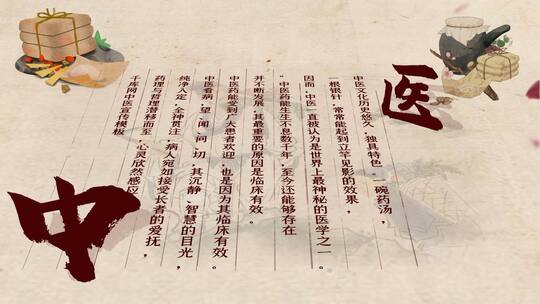 医
中医文化历史悠久，独具特色。一碗药汤，
一根银针，常常能起到立竿见影的效果，
因而，中医一直被认为是世界上最神秘的医学之一。
中医药能生生不息数千年，至今还能够存在
并不断发展，其最重要的原因是临床有效。
中医药能受到广大患者欢迎，也是因为其临床有效。
中医看病，望、闻、问、切，其沉静、智慧的目光，
纯净入定，全神贯注，病人宛如接受长者的爱抚，
药理与哲理潜移而至，心灵欣然感应。
千库网中医宣传模板
中